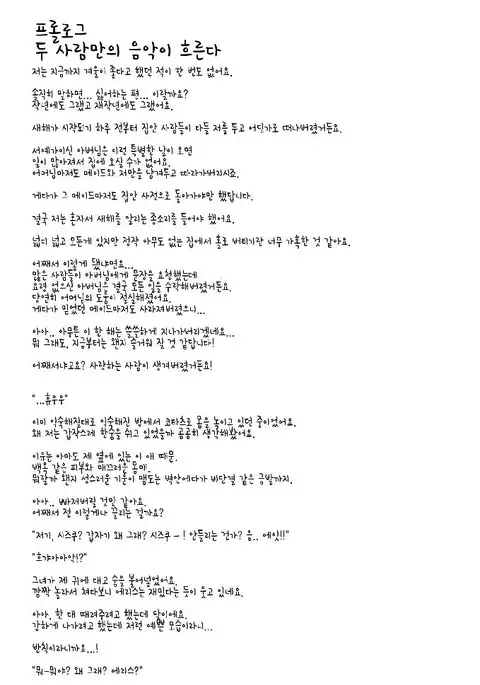 프롤로그
두 사람만의 음악이 흐른다
저는 지금까지 겨울이 좋다고 했던 적이 한 번도 없어요.
솔직히 말하면... 싫어하는 편... 이랄까요?
작년에도 그랬고 재작년에도 그랬어요.
새해가 시작되기 하루 전부터 집안 사람들이 다들 저를 두고 어딘가로 떠나버렸거든요.
서예가이신 아버님은 이런 특별한 날이 오면
일이 많아져서 집에 오실 수가 없어요.
어머님마저도 메이드와 저만을 남겨두고 따라가버리시죠.
게다가 그 메이드마저도 집안 사정으로 돌아가야만 했답니다.
결국 저는 혼자서 새해를 알리는 종소리를 들어야 했어요.
넓디 넓고 모든게 있지만 정작 아무도 없는 집에서 홀로 버티기란 너무 가혹한 것 같아요.
어째서 이렇게 됐냐면요...
많은 사람들이 아버님에게 문장을 요청했는데
요령 없으신 아버님은 결국 모든 일을 수락해버렸거든요.
당연히 어머님의 도움이 절실해졌어요.
게다가 믿었던 메이드마저도 사라져버렸으니...
아아.. 아무튼 이 한 해는 쓸쓸하게 지나가버리겠네요...
뭐 그래도, 지금부터는 왠지 즐거워 질 것 같답니다!
어째서냐고요? 사랑하는 사람이 생겨버렸거든요!
"...휴우우"
이미 익숙해질대로 익숙해진 방에서 코타츠로 몸을 녹이고 있던 중이었어요.
왜 저는 갑작스레 한숨을 쉬고 있었을까 곰곰히 생각해봤어요.
이유는 아마도 제 옆에 있는 이 애 때문.
백옥 같은 피부와 매끄러운 몸매.
뭐랄까 왠지 성스러운 기운이 맴도는 벽안에다가 비단결 같은 금발까지.
아아.. 빠져버릴 것만 같아요.
어째서 전 이렇게나 끌리는 걸까요?
"저기, 시즈쿠? 갑자기 왜 그래? 시즈쿠 ~ ! 안들리는 건가? 음.. 에잇!!"
"흐갸아아앗!?"
그녀가 제 귀에 대고 숨을 불어넣었어요.
깜짝 놀라서 쳐다보니 에리스는 재밌다는 듯이 웃고 있네요.
아아, 한 대 때려주려고 했는데 말이에요.
강하게 나가려고 했는데 저런 예쁜 모습이라니...
반칙이라니까요...!
"뭐-뭐야? 왜 그래? 에리스?"